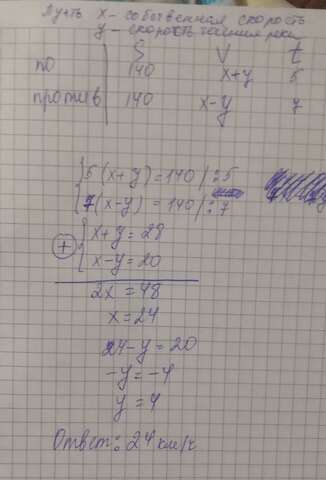 Пусть x - собственная скорость
y - скорость течения реки
S V t
по 140 x+y 5
против 140 x-y 7
5(x+y)=140 /:5
7(x-y) = 140 /:7
+ x+y = 28
x-y = 20
2x = 48
x = 24
24-y = 20
-y = -4
y = 4
Ответ: 24 км/ч